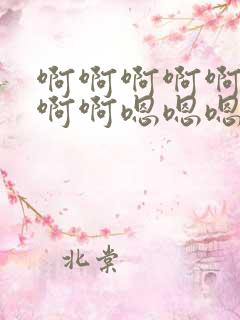 啊啊啊啊啊
啊啊嗯嗯嗯
北棠